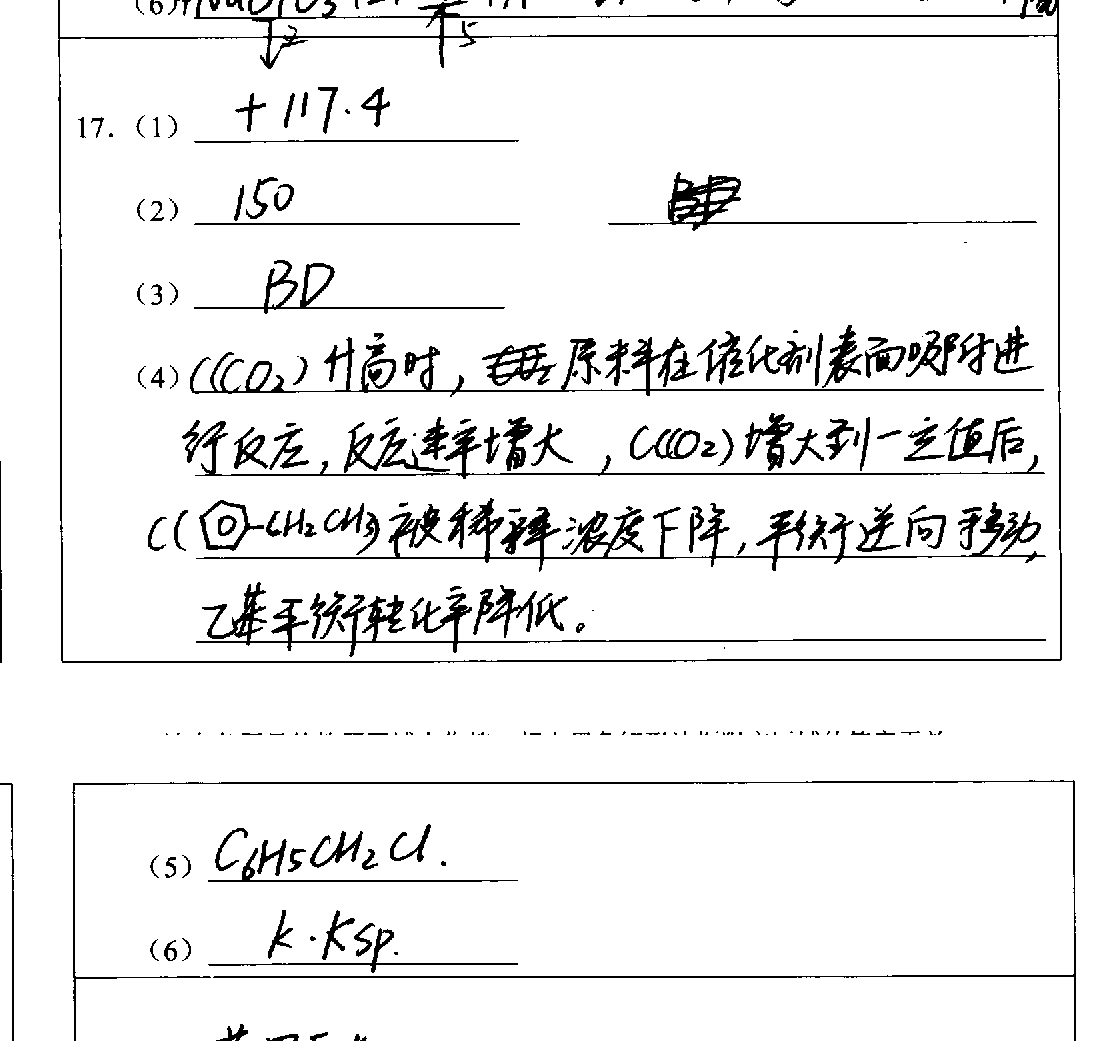 17. (1) +117.4
(2) 150
(3) BD
(4) C(CO₂)升高时, 原料在催化剂表面吸附进
行反应, 反应速率增大, C(CO₂)增大到一定值后,
C( -CH₂CH₃ 被稀释 浓度下降, 平衡逆向移动,
乙基平衡转化率降低。
(5) C₆H₅CH₂Cl.
(6) K·Ksp.